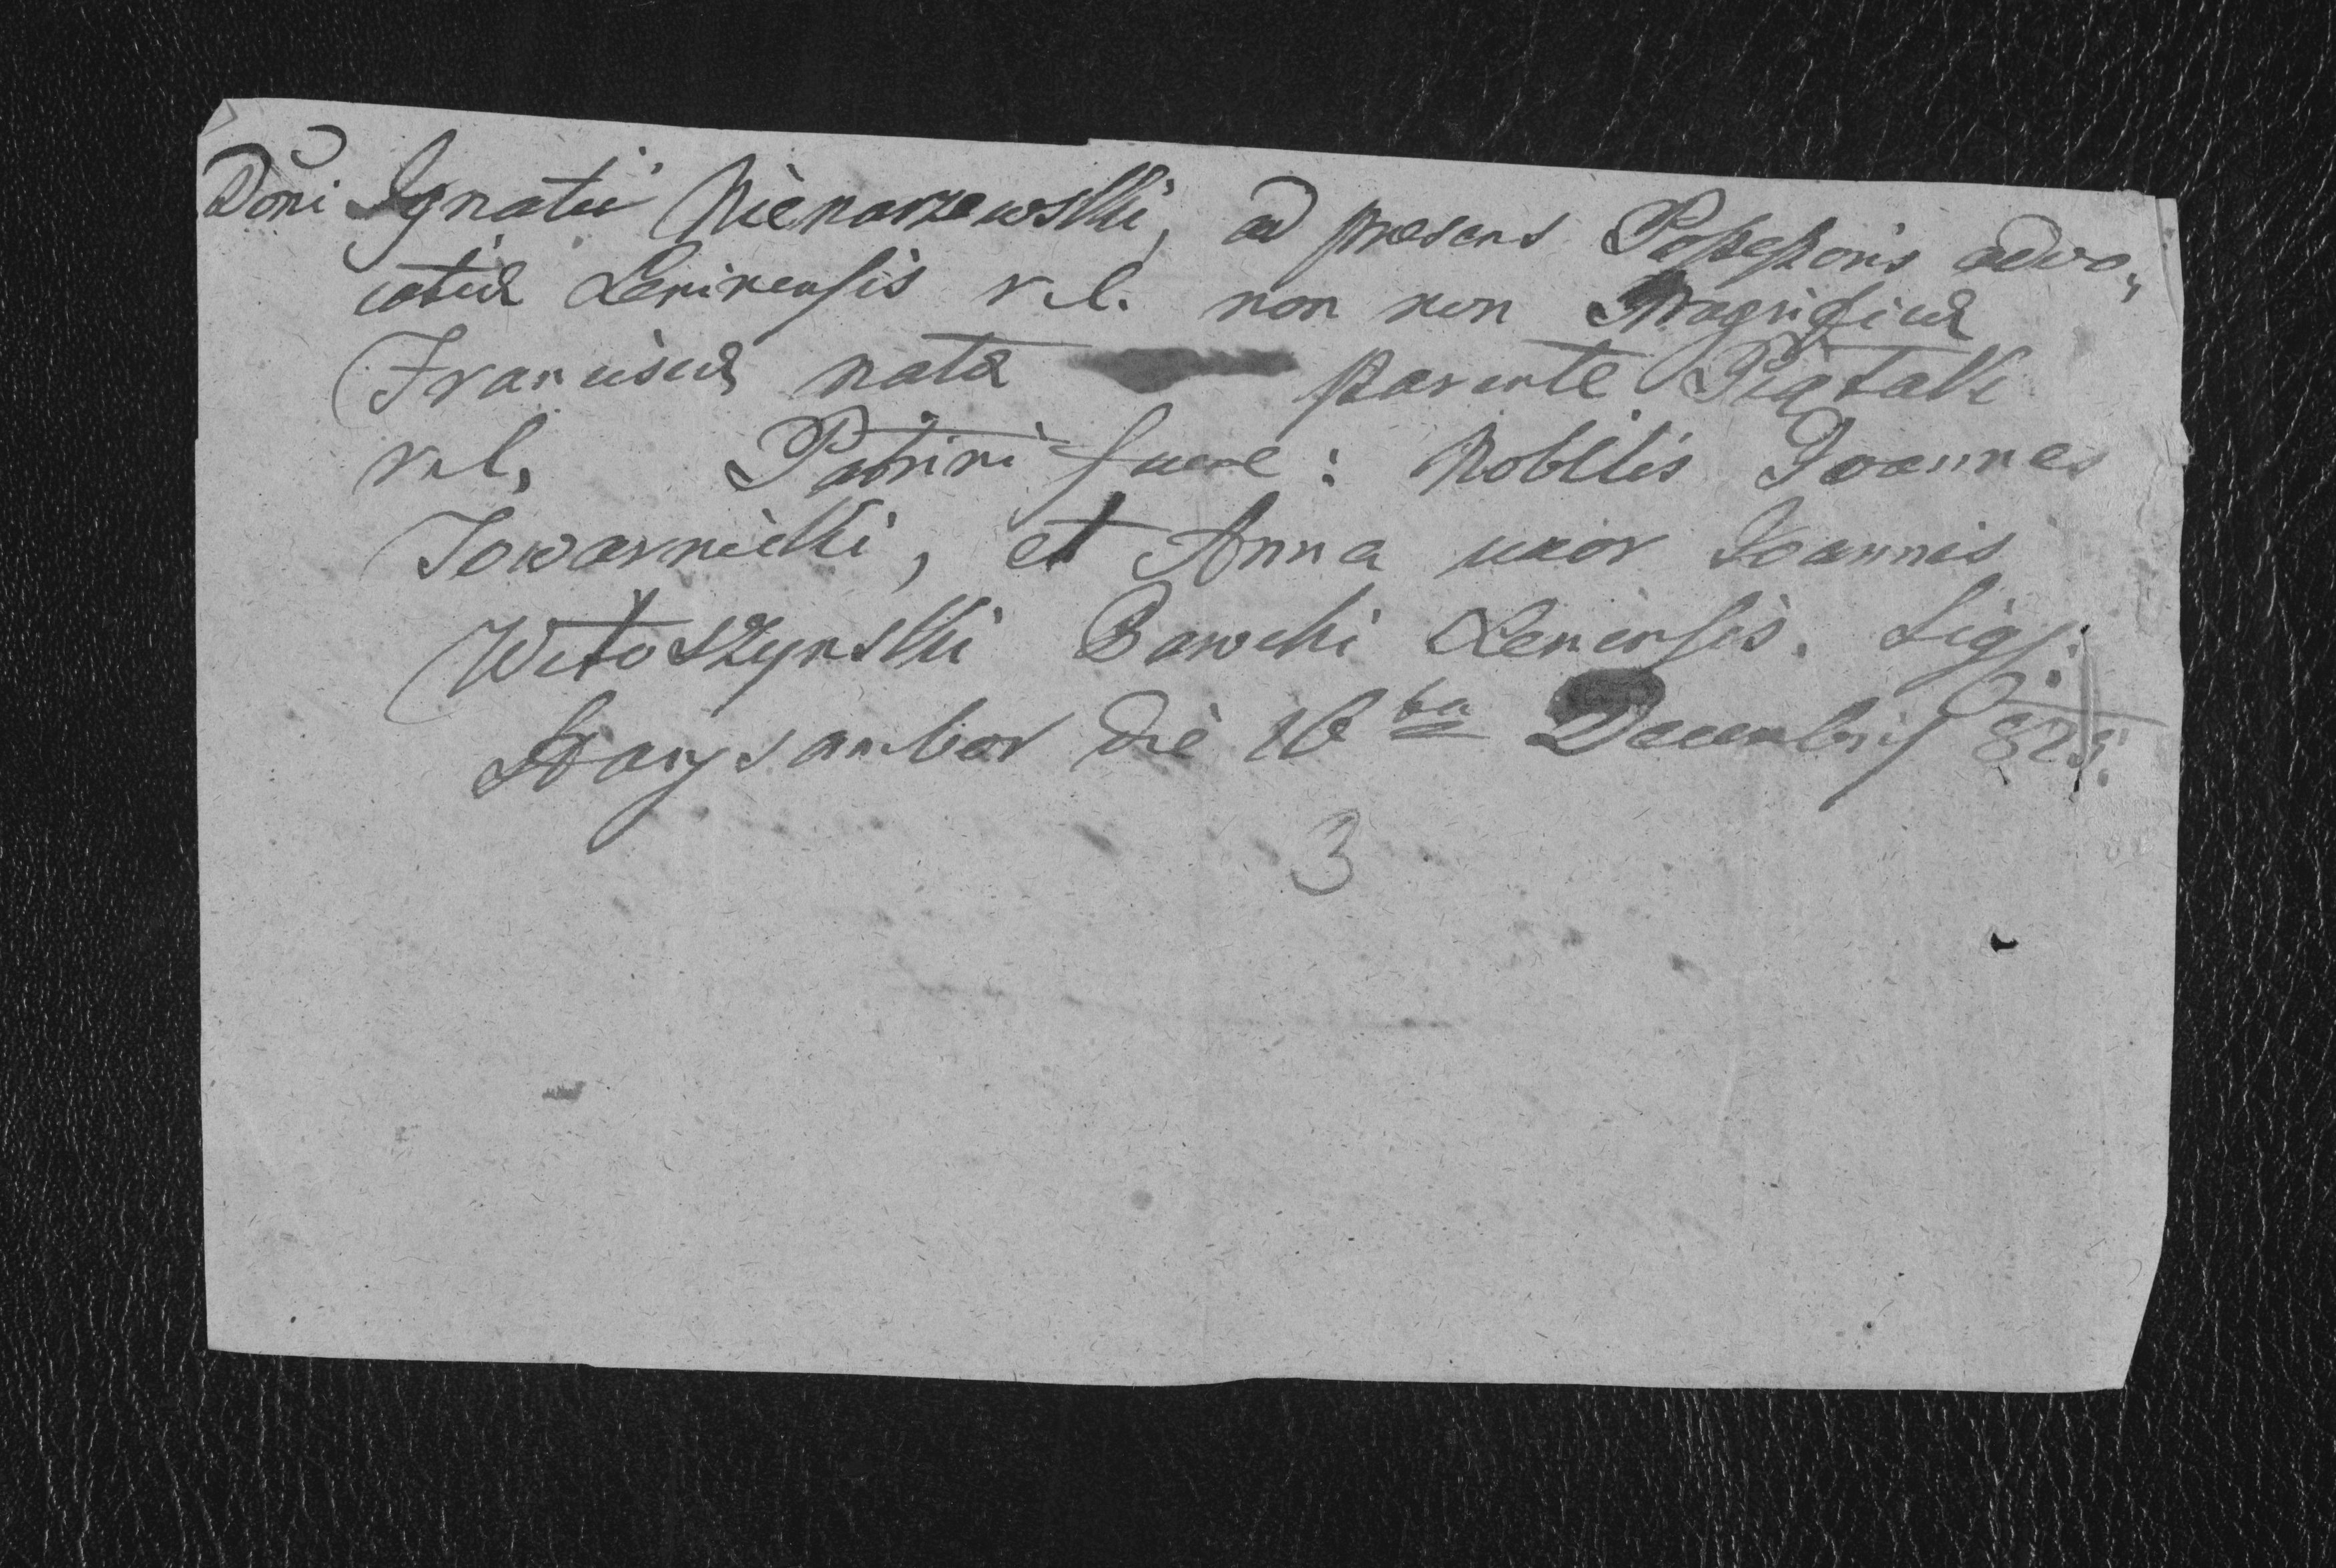 Dōni Ignatii Nienarzewski, ad presens Possessoris advo„
catiæ Leninensis r. l. non non Magnificæ
Franciscæ natæ parente Piątaki
r. l, Patrini fuere: Nobilis Joannes
Towarnicki, et Anna uxor Joannis
Witoszynski Parochi Leninsis. Sigl:
Starysambor die 16ta Decembris 825.
3